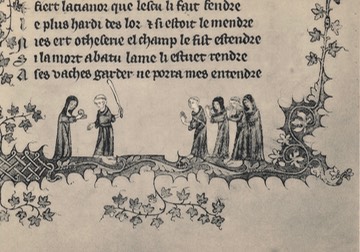 fiert lacianor que lescu li fait fendre
L e plus hardi des lor ⁊ si estoit le mendre
N ies ert otheserie el champ le fist estendre
S i la mort abatu lame li estuet rendre
A ses vaches garder ne porra mes entendre